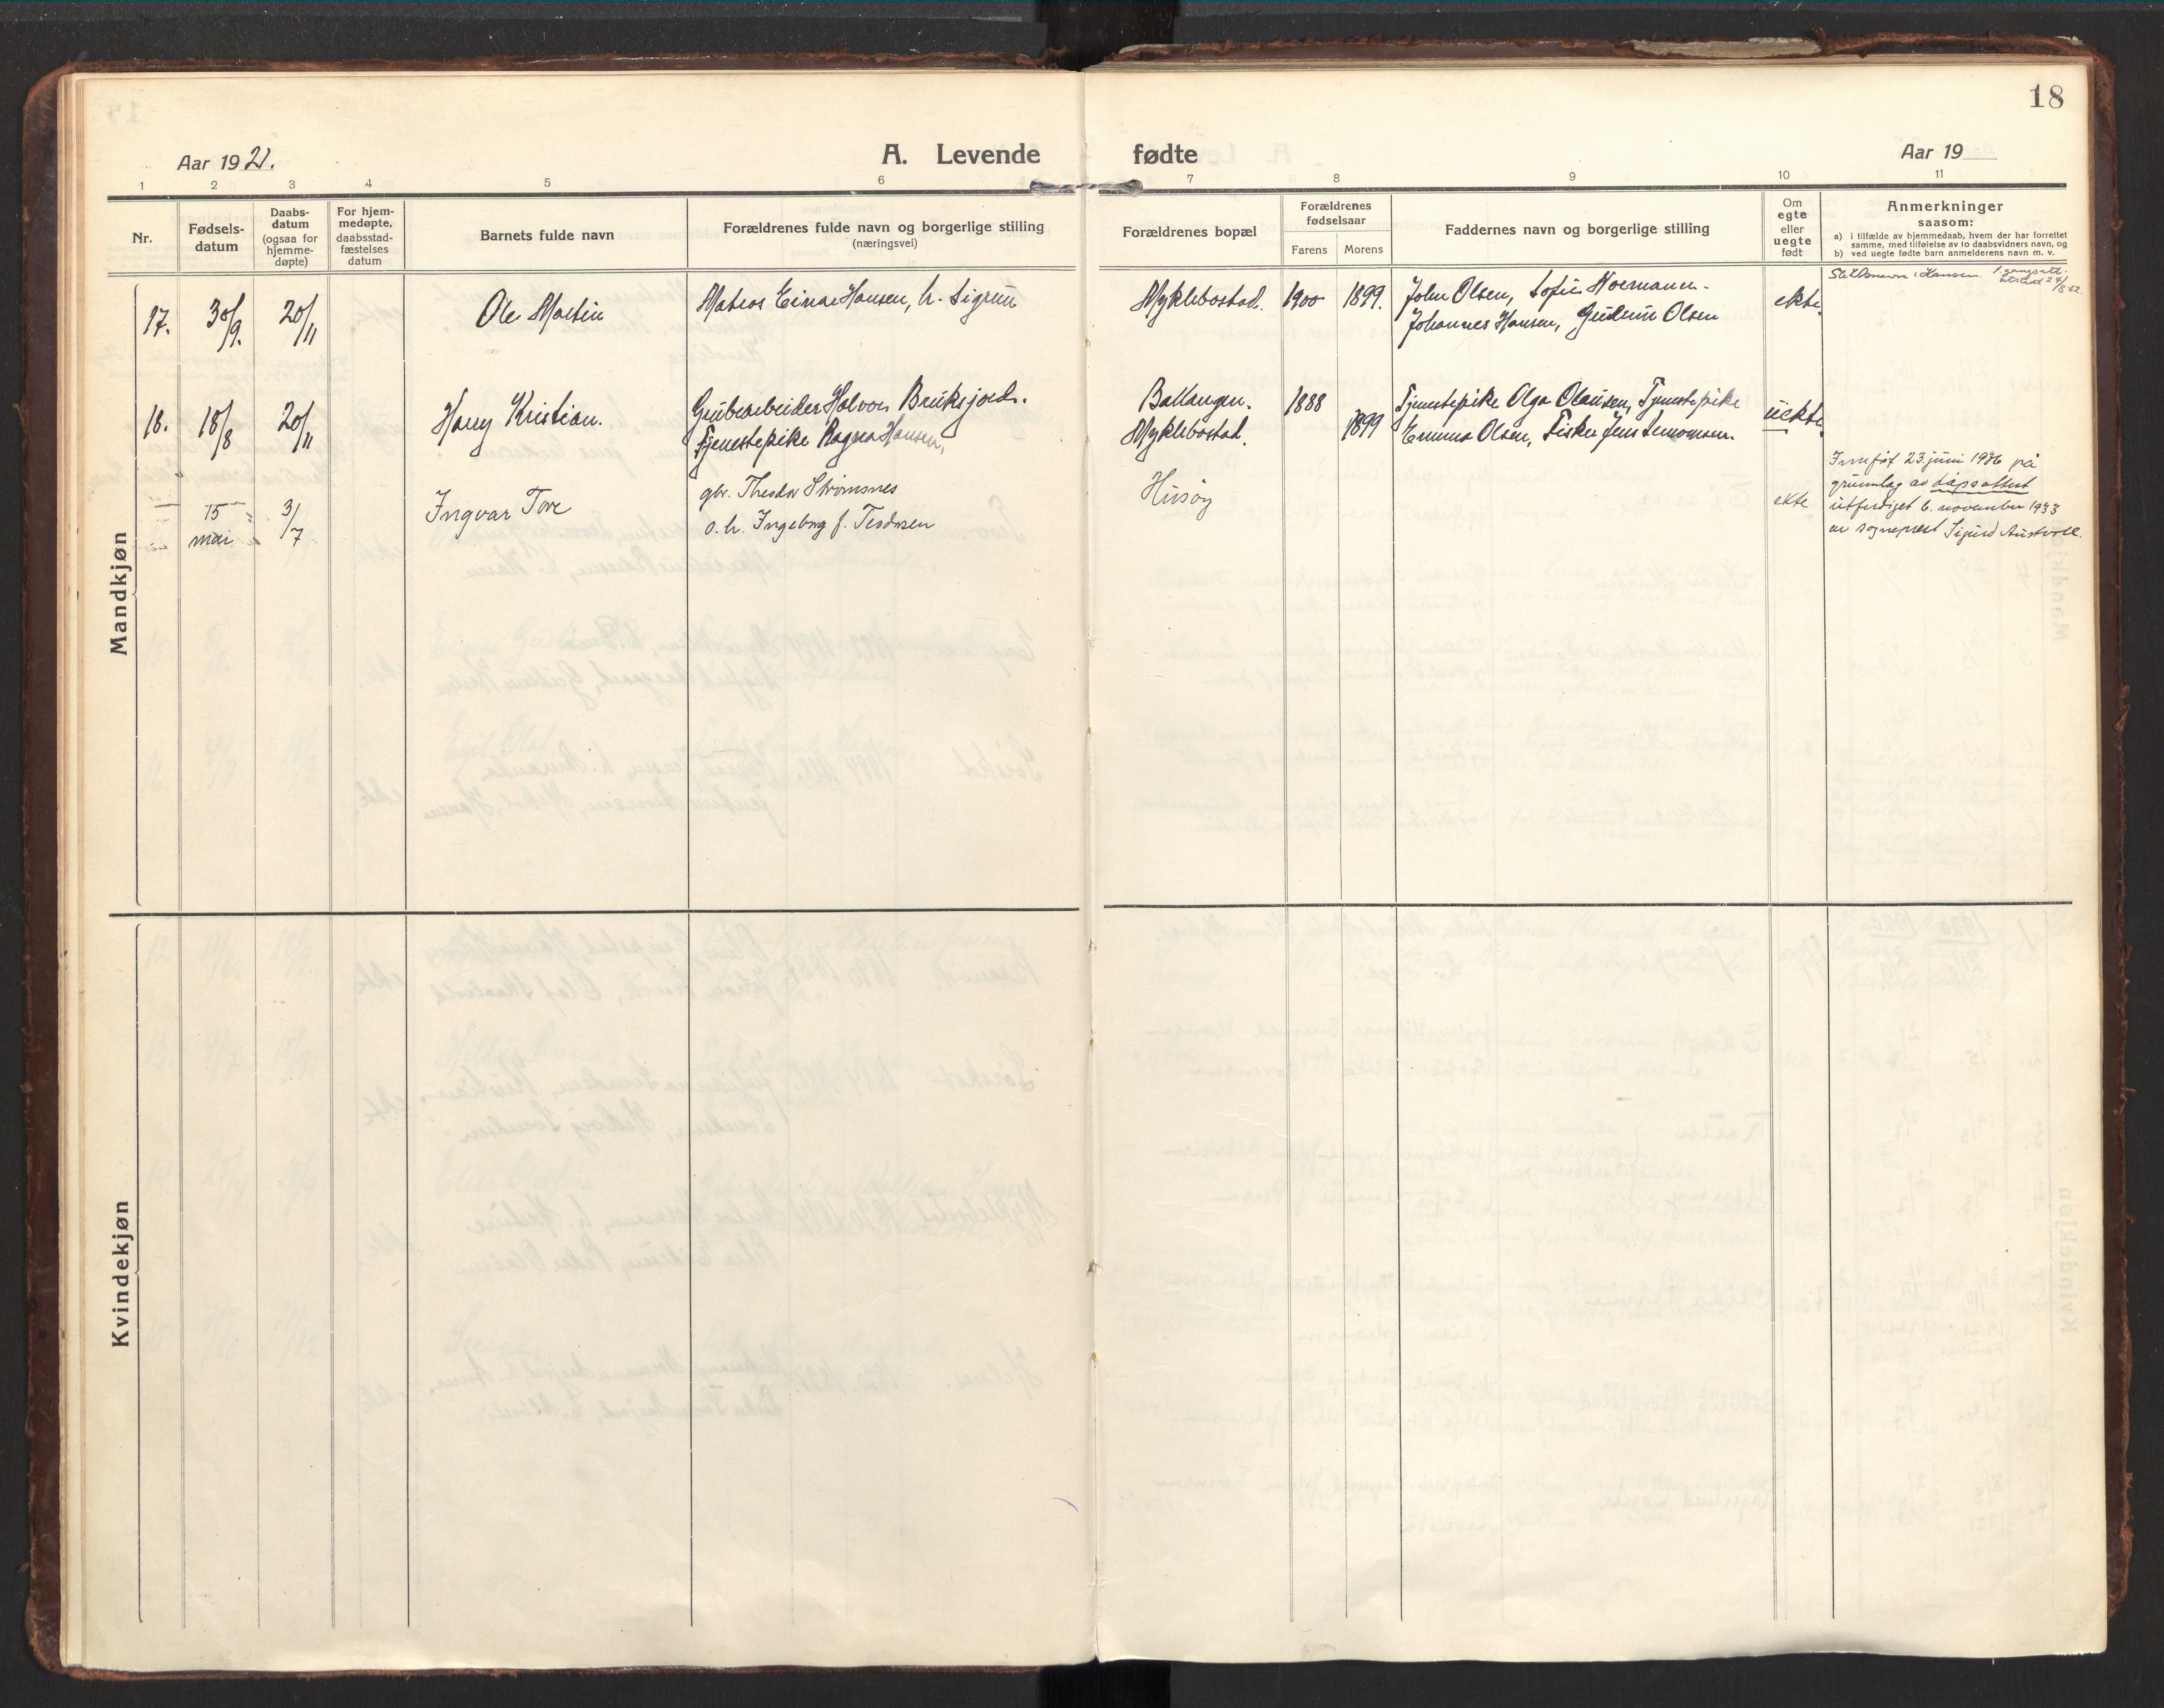 18
Aar 1921.
A. Levende fødte
Aar 19
1 2 3 4 5 6 7 8 9 10 11
Nr.
Fødsels-
datum
Daabs-
datum
(ogsaa for
hjemme-
døpte)
For hjem-
medøpte,
daabsstad-
fæstelses
datum
Barnets fulde navn
Forældrenes fulde navn og borgerlige stilling
(næringsvei)
Forældrenes bopæl
Forældrenes
fødselsaar
Farens Morens
Faddernes navn og borgerlige stilling
Om
egte
eller
uegte
født
Anmerkninger
saasom:
a) i tilfælde av hjemmedaab, hvem der har forrettet
samme, med tilføielse av to daabsvidners navn, og
b) ved uegte fødte barn anmelderens navn m. v.
Mandkjøn
17. 30/9. 20/11 Ole Martin Matros Einar Hansen, h. Sigrun Myklebostad. 1900 1899. John Olsen, Sofie Normann.
Johannes Hansen, Gudrun Olsen
ekte.
Slektsnavn: Hansen.
18. 18/8 20/11 Harry Kristian. Grubearbeider Halvor Bruksjord. Ballangen. 1888 Tjenestepike Olga Olausen, Tjenestepike
Tjenestepike Ragna Hansen, Myklebostad. 1899 Emma Olsen, Fisker Jens
uekte.
15 mai 3/7 Ingvar Tore gbr. Theodor Strømsnes
o. h. Ingeborg f. Teodorsen
Husøy
ekte
Innført 23. juni 1936 på
grunnlag av dåpsattest
utferdiget 6. november 1933
av sogneprest Sigurd Austvoll.
Kvindekjøn